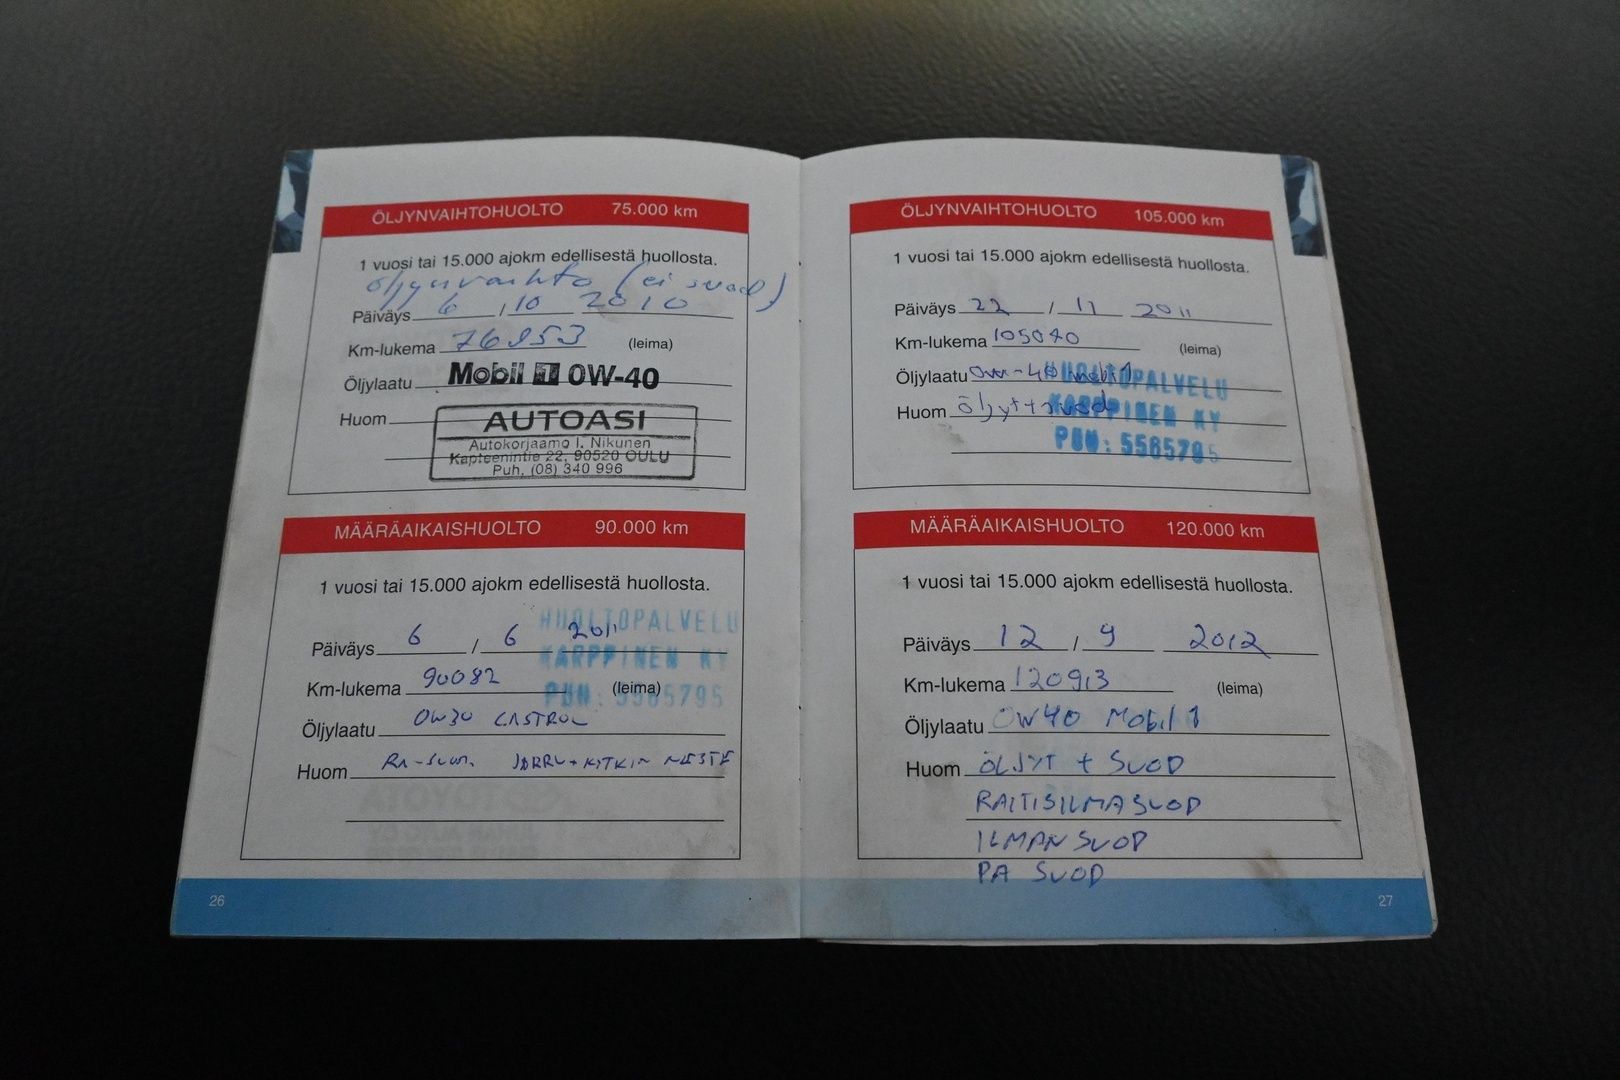 ÖLJYNVAIHTOHUOLTO 75.000 km
1 vuosi tai 15.000 ajokm edellisestä huollosta.
öljynvaihto (ei suod)
Päiväys 6 / 10 2010
Km-lukema 76953 (leima)
Öljylaatu Mobil 1 0W-40
Huom
AUTOASI
Autokorjaamo I. Nikunen
Kapteenintie 22, 90520 OULU
Puh. (08) 340 996
MÄÄRÄAIKAISHUOLTO 90.000 km
1 vuosi tai 15.000 ajokm edellisestä huollosta.
HUOLTOPALVELU
Päiväys 6 / 6 2011
KARPPINEN KY
Km-lukema 90082 (leima)
PUH: 5565795
Öljylaatu 0W30 CASTROL
Huom RA-SUOD. JARRU+KYTKIN NESTE
26
ÖLJYNVAIHTOHUOLTO 105.000 km
1 vuosi tai 15.000 ajokm edellisestä huollosta.
Päiväys 22 / 11 2011
Km-lukema 105040 (leima)
Öljylaatu 0W-40 mobil 1
HUOLTOPALVELU
Huom öljyt+suod
KARPPINEN KY
PUH: 5565795
MÄÄRÄAIKAISHUOLTO 120.000 km
1 vuosi tai 15.000 ajokm edellisestä huollosta.
Päiväys 12 / 9 2012
Km-lukema 120913 (leima)
Öljylaatu 0W40 MOBIL 1
Huom ÖLJYT + SUOD
RAITISILMASUOD
ILMAN SUOD
PA SUOD
27